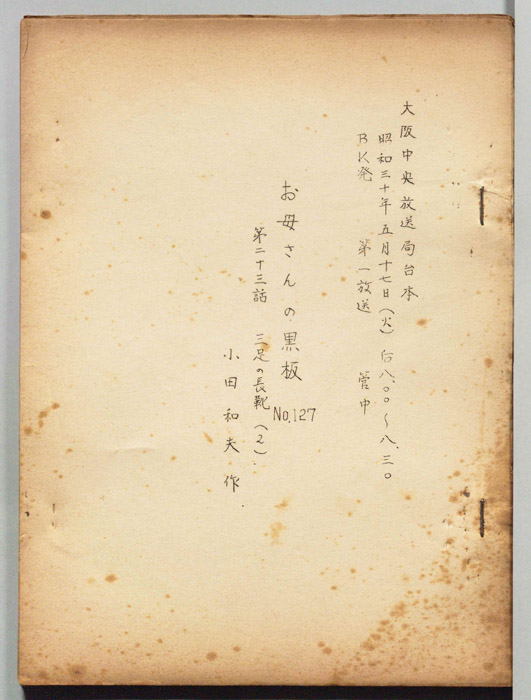 大阪中央放送局台本
昭和三十年五月十七日(火)后八.〇〇~八.三〇
BK発 第一放送 管中
お母さんの黒板
No.127
第二十三話 三足の長靴(2)
小田和夫作